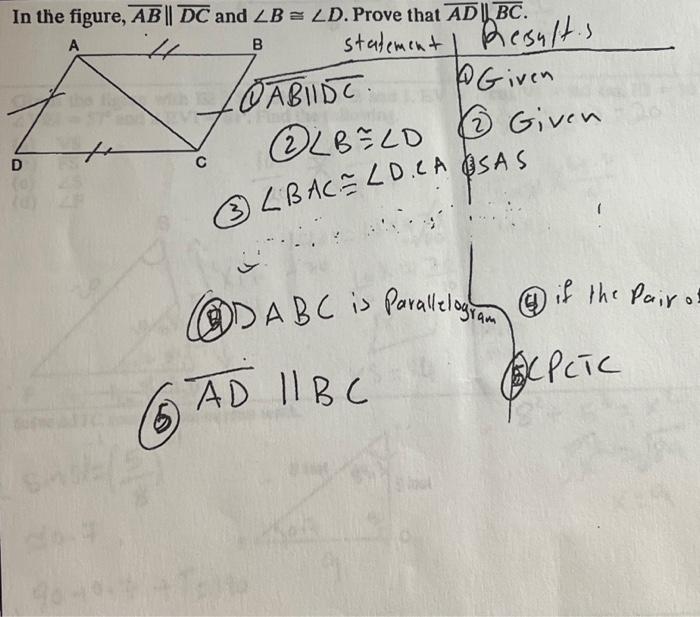 In the figure, AB || DC and ∠B ≅ ∠D. Prove that AD || BC.
statement Results
A B
D C
① AB || DC. ① Given
② ∠B ≅ ∠D ② Given
③ ∠BAC ≅ ∠D.CA ③ SAS
④ DABC is Parallelogram ④ if the Pair of
⑤ AD || BC ⑤ CPCTC